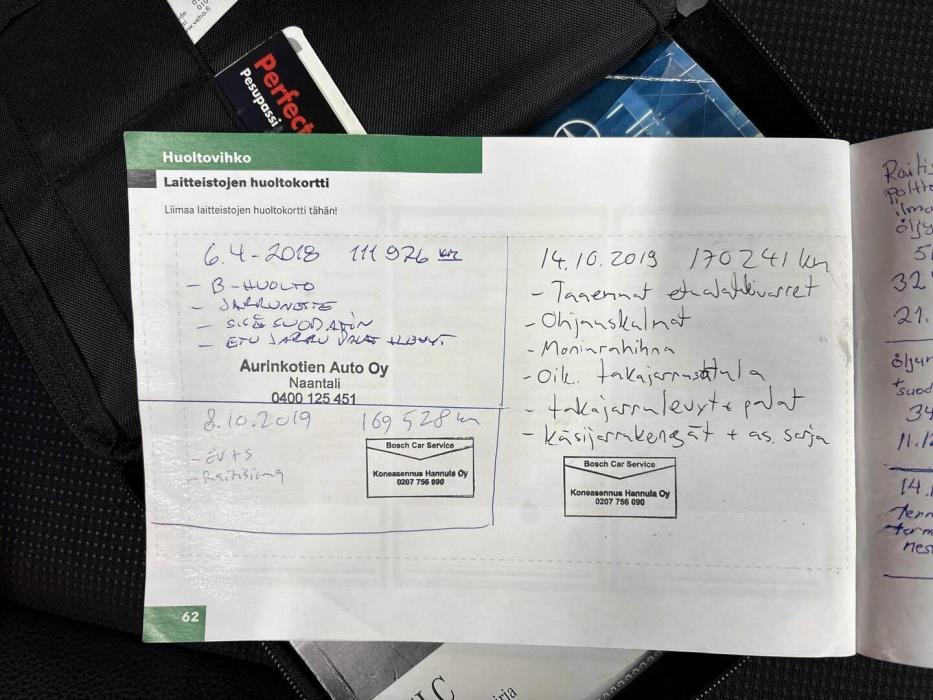 www.veho.fi
Perfect
Pesupassi
Huoltovihko
Laitteistojen huoltokortti
Liimaa laitteistojen huoltokortti tähän!
6.4-2018 111 976 km
- B-HUOLTO
- JARRUNESTE
- SISÄSUODATIN
- ETU JARRU PALAT + LEVYT
Aurinkotien Auto Oy
Naantali
0400 125 451
8.10.2019 169 528 km
- ÖV+S
- Raitisilma
Bosch Car Service
Koneasennus Hannula Oy
0207 756 090
14.10.2019 170 241 km
- Taaemmat etualatukivarret
- Ohjauskalmat
- Moniurahihna
- Oik. takajarrusatula
- takajarrulevyt + palat
- Käsijarrukengät + as. sarja
Bosch Car Service
Koneasennus Hannula Oy
0207 756 090
62
Raitis
ilma
öljy
32
21.
öljyn
suod
34
11.12
14.1